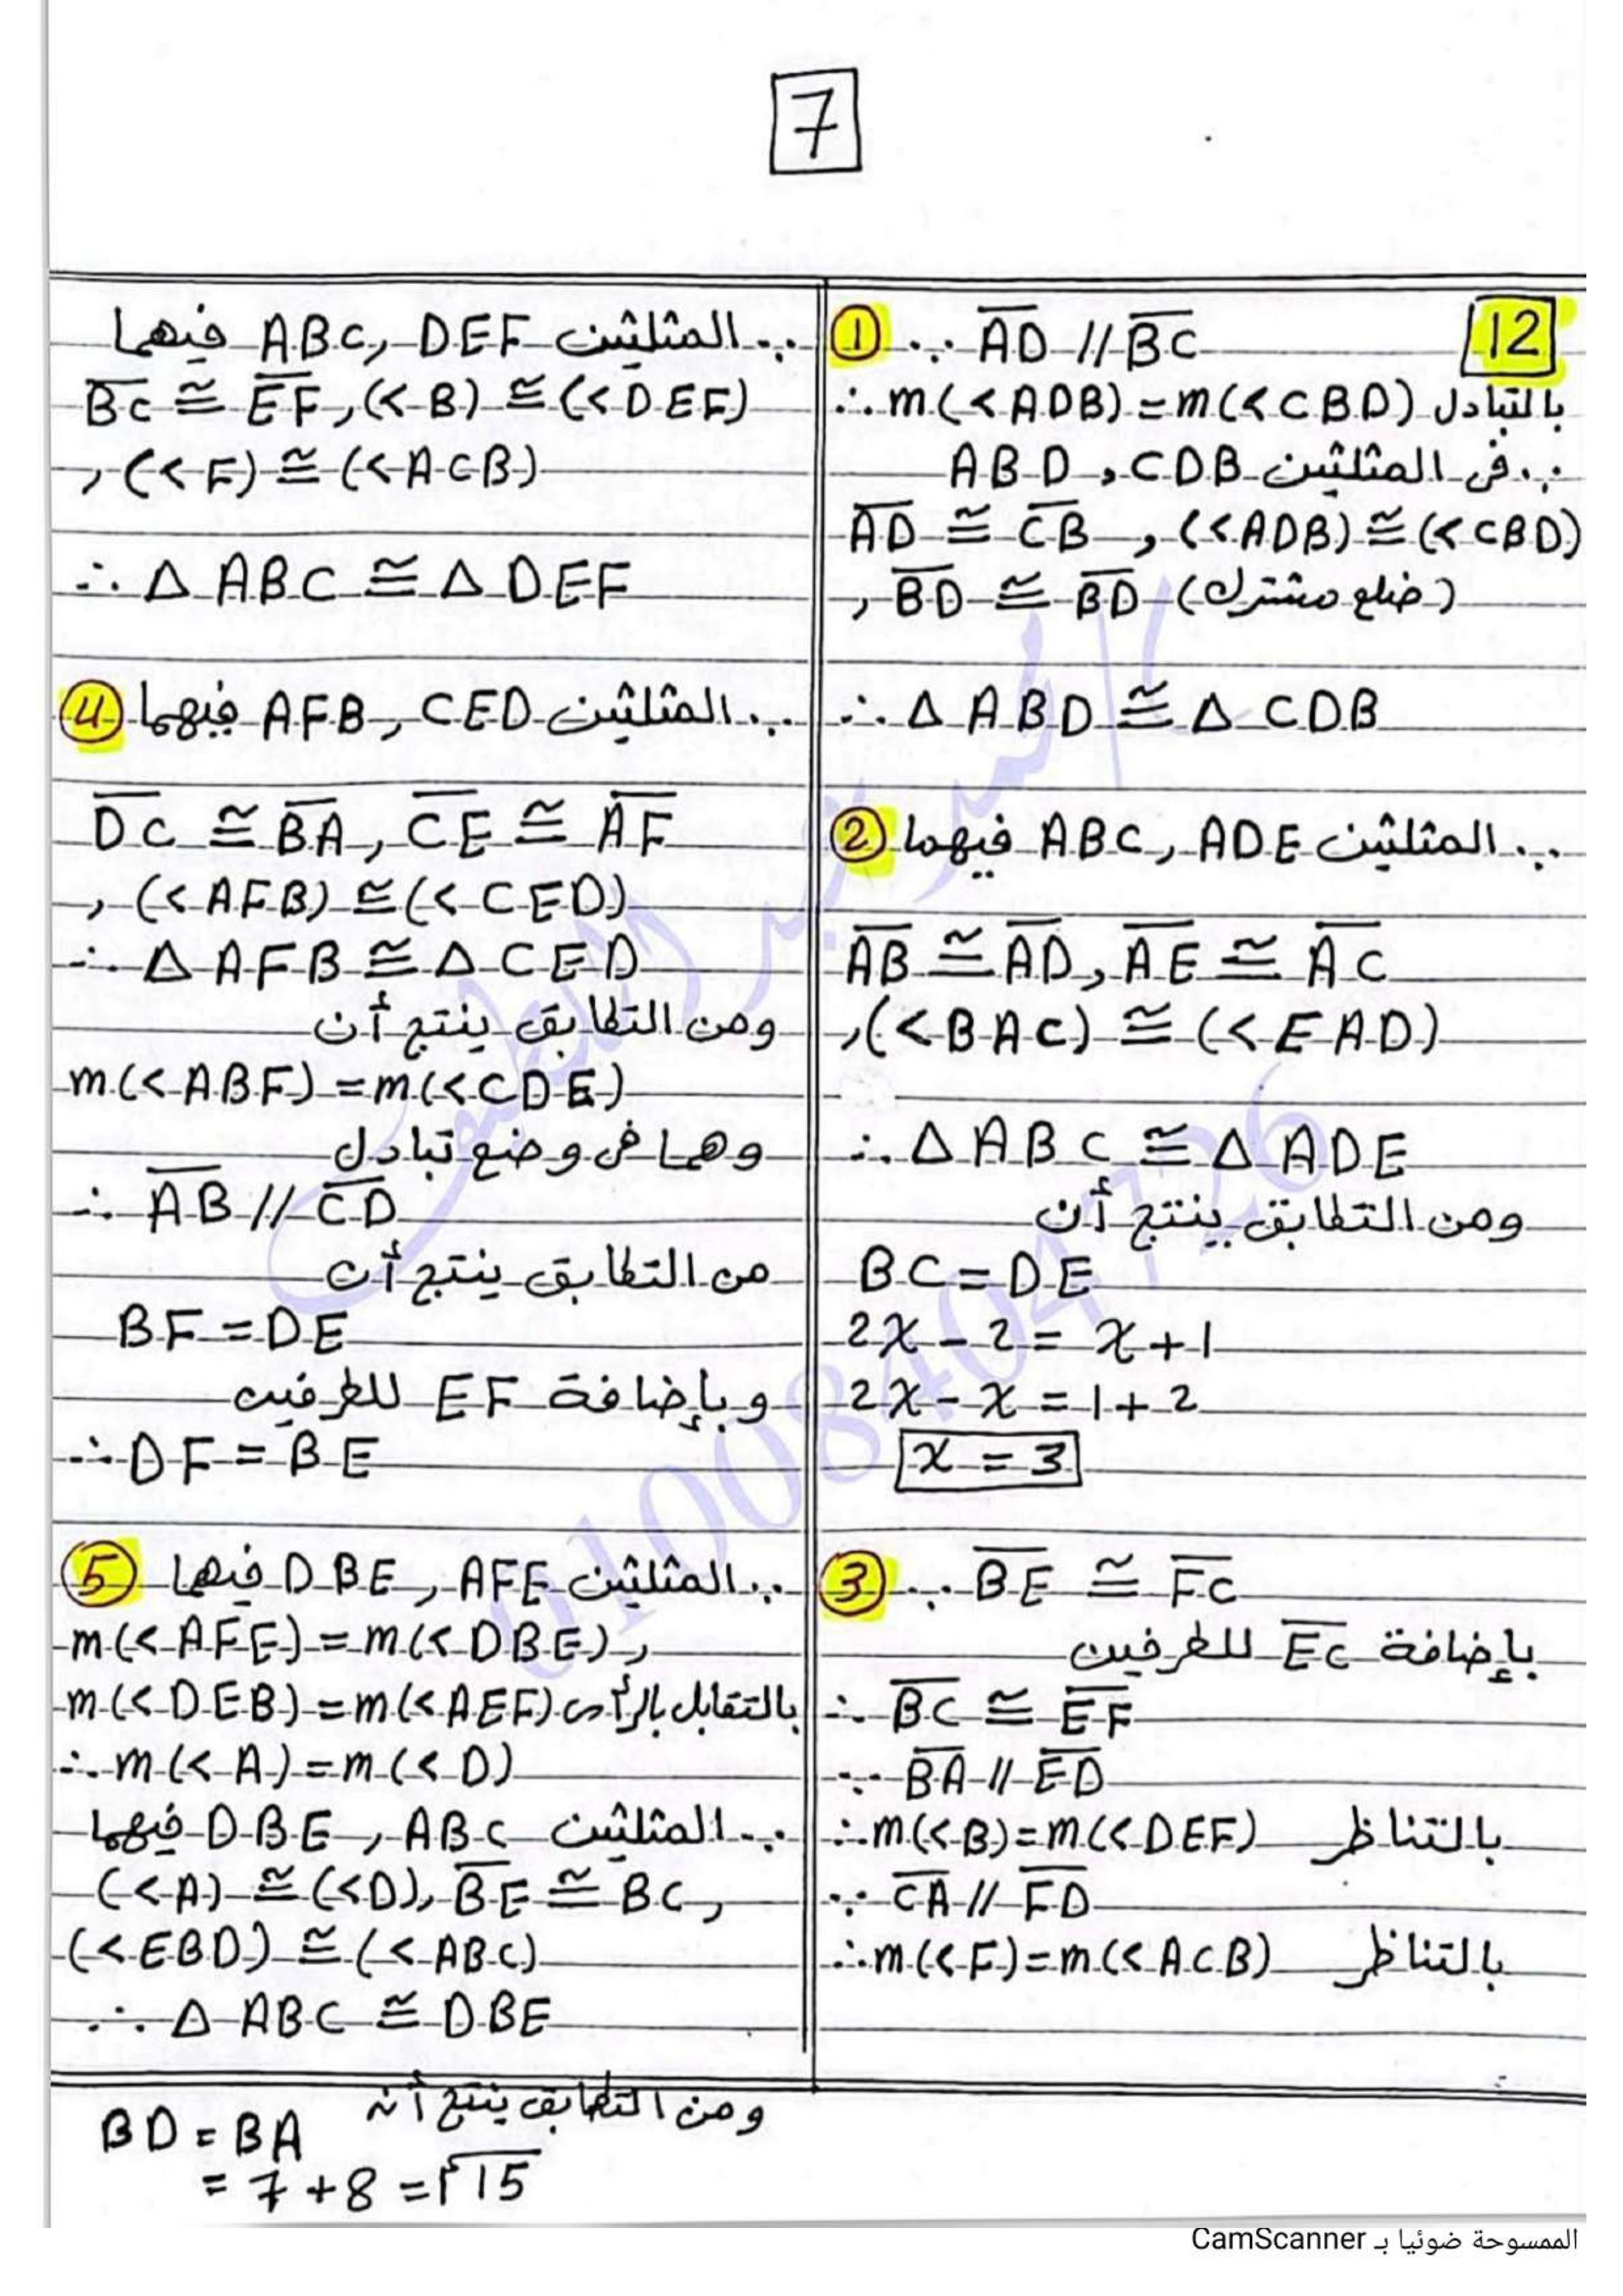 7
12
① ∵ AD // BC
∴ m(<ADB) = m(<CBD) بالتبادل
∵ فى المثلثين ABD , CDB
AD ≅ CB , (<ADB) ≅ (<CBD)
, BD ≅ BD (ضلع مشترك)
∴ Δ ABD ≅ Δ CDB
② ∵ المثلثين ABC , ADE فيهما
AB ≅ AD , AE ≅ AC
, (<BAC) ≅ (<EAD)
∴ Δ ABC ≅ Δ ADE
ومن التطابق ينتج أن
BC = DE
2x - 2 = x + 1
2x - x = 1 + 2
x = 3
③ ∵ BE ≅ FC
بإضافة EC للطرفين
∴ BC ≅ EF
∵ BA // ED
∴ m(<B) = m(<DEF) بالتناظر
∵ CA // FD
∴ m(<F) = m(<ACB) بالتناظر
∵ المثلثين ABC , DEF فيهما
BC ≅ EF , (<B) ≅ (<DEF)
, (<F) ≅ (<ACB)
∴ Δ ABC ≅ Δ DEF
④ ∵ المثلثين AFB , CED فيهما
DC ≅ BA , CE ≅ AF
, (<AFB) ≅ (<CED)
∴ Δ AFB ≅ Δ CED
ومن التطابق ينتج أن
m(<ABF) = m(<CDE)
وهما فى وضع تبادل
∴ AB // CD
من التطابق ينتج أن
BF = DE
وبإضافة EF للطرفين
∴ DF = BE
⑤ ∵ المثلثين DBE , AFE فيهما
m(<AFE) = m(<DBE) ,
m(<DEB) = m(<AEF) بالتقابل بالرأس
∴ m(<A) = m(<D)
∵ المثلثين DBE , ABC فيهما
(<A) ≅ (<D), BE ≅ BC ,
(<EBD) ≅ (<ABC)
∴ Δ ABC ≅ DBE
ومن التطابق ينتج أن
BD = BA
= 7 + 8 = 15
01008404726
الممسوحة ضوئيا بـ CamScanner